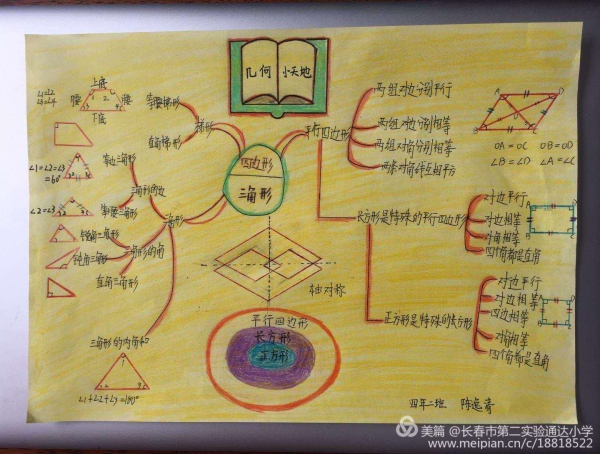 几何 小天地
四边形
三角形
梯形
等腰梯形
直角梯形
上底
腰
腰
下底
∠1=∠2
∠3=∠4
三角形
三角形的边
等边三角形
∠1=∠2=∠3
=60°
等腰三角形
∠2=∠3
三角形的角
锐角三角形
钝角三角形
直角三角形
三角形的内角和
∠1+∠2+∠3=180°
平行四边形
两组对边分别平行
两组对边分别相等
两组对角分别相等
两条对角线互相平方
OA=OC OB=OD
∠B=∠D ∠A=∠C
长方形是特殊的平行四边形
对边平行
对边相等
对角相等
四个角都是直角
正方形是特殊的长方形
对边平行
对边相等
四边相等
对角相等
四个角都是直角
轴对称
平行四边形
长方形
正方形
四年二班
美篇 @长春市第二实验通达小学
www.meipian.cn/c/18818522